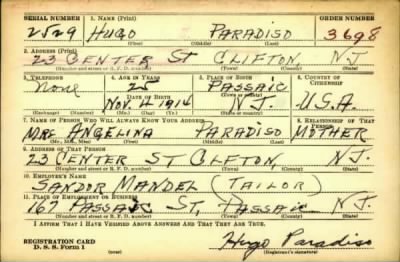 SERIAL NUMBER 1. NAME (Print) ORDER NUMBER
2529 HUGO PARADISO 3698
(First) (Middle) (Last)
2. ADDRESS (Print)
23 CENTER ST CLIFTON, NJ.
(Number and street or R. F. D. number) (Town) (County) (State)
3. TELEPHONE 4. AGE IN YEARS 5. PLACE OF BIRTH 6. COUNTRY OF CITIZENSHIP
None 25 PASSAIC
DATE OF BIRTH (Town or county)
NOV. 4 1914 N.J. U.S.A.
(Exchange) (Number) (Mo.) (Day) (Yr.) (State or country)
7. NAME OF PERSON WHO WILL ALWAYS KNOW YOUR ADDRESS 8. RELATIONSHIP OF THAT PERSON
MRS ANGELINA PARADISO MOTHER
(Mr., Mrs., Miss) (First) (Middle) (Last)
9. ADDRESS OF THAT PERSON
23 CENTER ST CLFTON, NJ.
(Number and street or R. F. D. number) (Town) (County) (State)
10. EMPLOYER'S NAME
SANDOR MANDEL (TAILOR)
11. PLACE OF EMPLOYMENT OR BUSINESS
167 PASSAIC ST, PASSAIC N.J.
(Number and street or R. F. D. number) (Town) (County) (State)
I AFFIRM THAT I HAVE VERIFIED ABOVE ANSWERS AND THAT THEY ARE TRUE.
REGISTRATION CARD Hugo Paradiso
D. S. S. Form 1 (Registrant's signature)